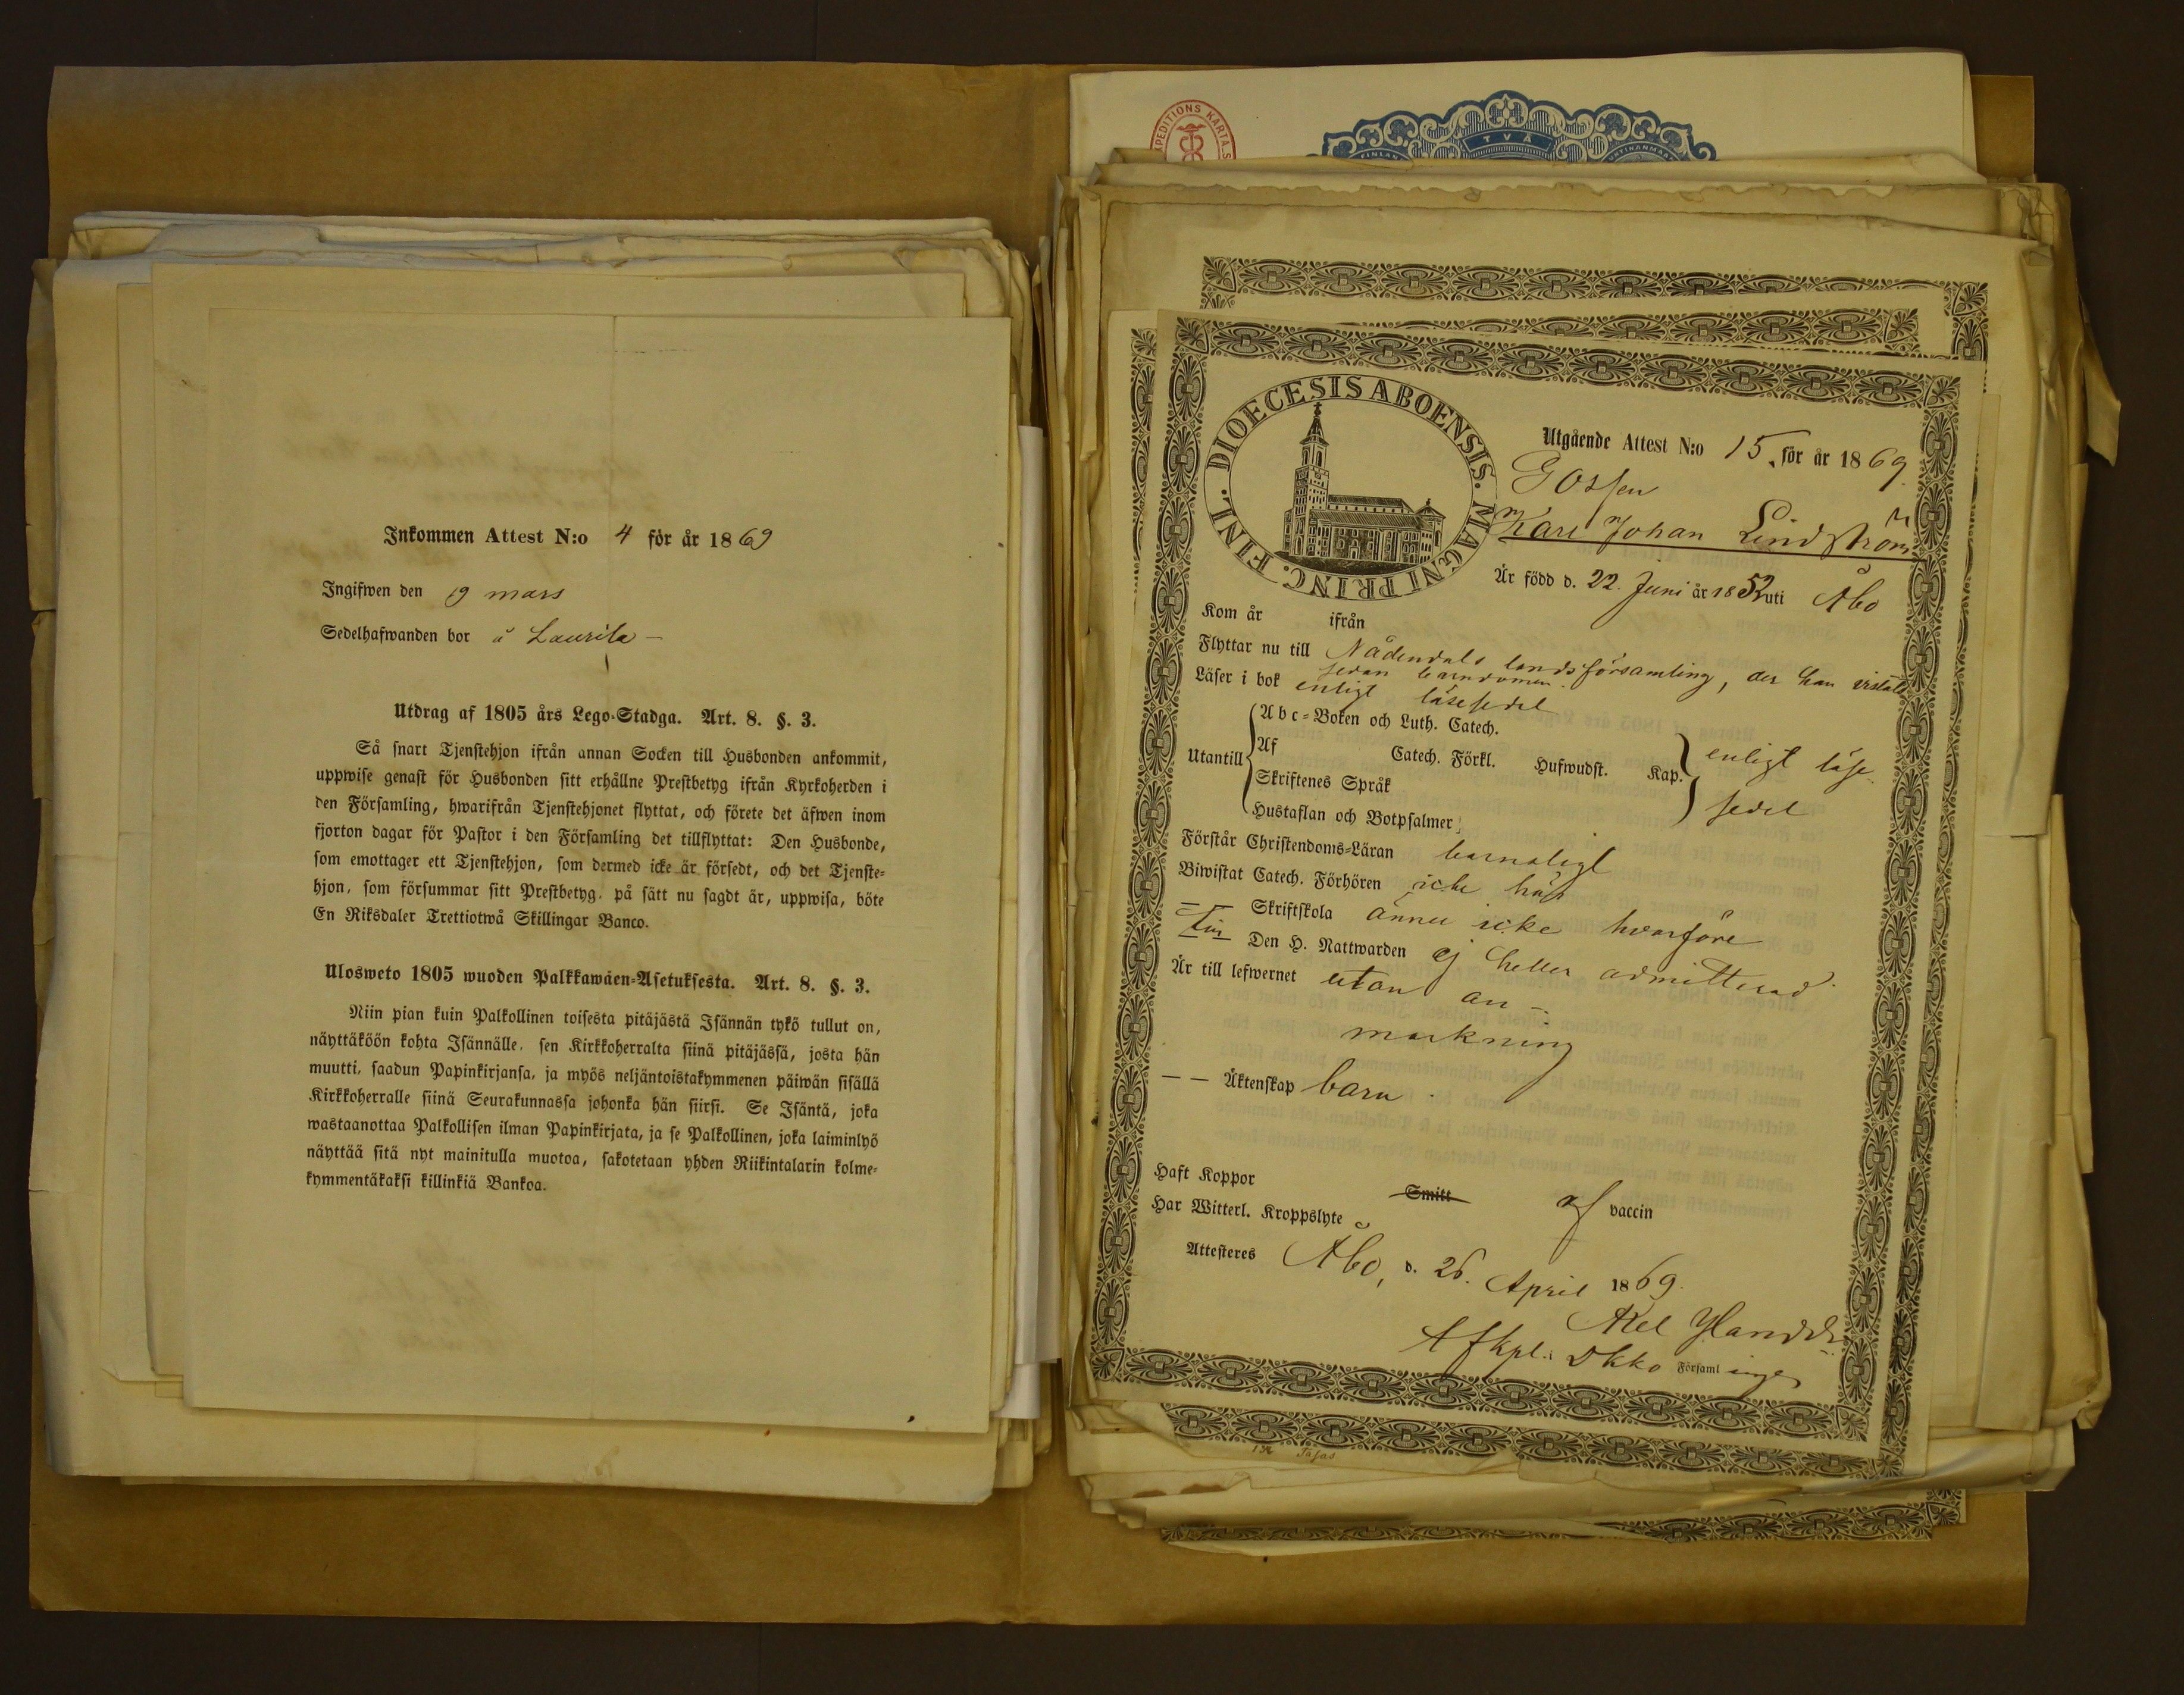 Inkommen Attest N:o 4 för år 1869
Ingifwen den 9 mars
Sedelhafwanden bor å Laurila
Utdrag af 1805 års Lego-Stadga. Art. 8. §. 3.
Så snart Tjenstehjon ifrån annan Socken till Husbonden ankommit,
uppwise genast för Husbonden sitt erhållne Prestbetyg ifrån Kyrkoherden i
den Församling, hwarifrån Tjenstehjonet flyttat, och förete det äfwen inom
fjorton dagar för Pastor i den Församling det tillflyttat: Den Husbonde,
som emottager ett Tjenstehjon, som dermed icke är försedt, och det Tjenste-
hjon, som försummar sitt Prestbetyg, på sätt nu sagdt är, uppwisa, böte
En Riksdaler Trettiotwå Skillingar Banco.
Ulosweto 1805 wuoden Palkkawäen-Asetuksesta. Art. 8. §. 3.
Niin pian kuin Palkollinen toisesta pitäjästä Isännän tykö tullut on,
näyttäköön kohta Isännälle, sen Kirkkoherralta siinä pitäjässä, josta hän
muutti, saadun Papinkirjansa, ja myös neljäntoistakymmenen päiwän sisällä
Kirkkoherralle siinä Seurakunnassa johonka hän siirsi. Se Isäntä, joka
wastaanottaa Palkollisen ilman Papinkirjata, ja se Palkollinen, joka laiminlyö
näyttää sitä nyt mainitulla muotoa, sakotetaan yhden Riikintalarin kolme-
kymmentäkaksi killinkiä Bankoa.
EXPEDITIONS KARTA
TVÅ
DIOECESIS ABOENSIS. MAGNI PRINC. FINL.
Utgående Attest N:o 15 för år 1869.
Gossen
Karl Johan Lindström
Är född d. 22. Juni år 1852 uti Åbo
Kom år ifrån
Flyttar nu till Nådendals landsförsamling, der han vistats
sedan barndomen.
Läser i bok enligt läsesedel
Utantill
Abc-Boken och Luth. Catech.
Af Catech. Förkl. Hufwudst. Kap.
Skriftenes Språk
Hustaflan och Botpsalmer
enligt läse
sedel
Förstår Christendoms-Läran barnsligt
Biwistat Catech. Förhören icke här
— — Skriftskola ännu icke hvarföre
Den H. Nattwarden ej heller admitterad.
Är till lefwernet utan an-
märkning
— — Äktenskap barn.
Haft Koppor Smitt af vaccin
Har Witterl. Kroppslyte
Attesteres Åbo, d. 26. April 1869.
Församl